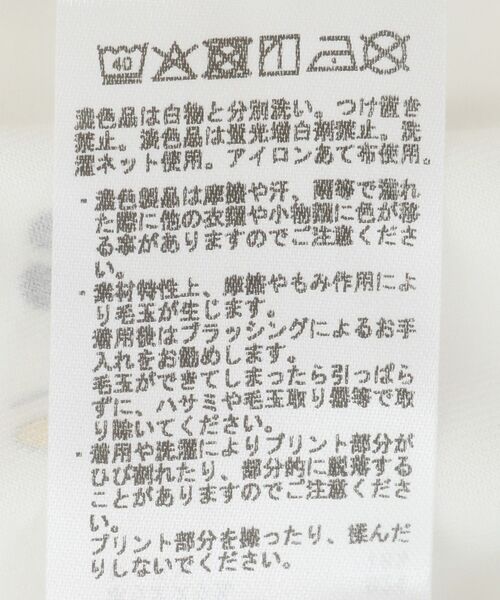 40
濃色品は白物と分別洗い。つけ置き
禁止。淡色品は蛍光増白剤禁止。洗
濯ネット使用。アイロンあて布使用。
・濃色製品は摩擦や汗、雨等で濡れ
た際に他の衣類や小物類に色が移
る事がありますのでご注意くださ
い。
・素材特性上、摩擦やもみ作用によ
り毛玉が生じます。
着用後はブラッシングによるお手
入れをお勧めします。
毛玉ができてしまったら引っぱら
ずに、ハサミや毛玉取り器等で取
り除いてください。
・着用や洗濯によりプリント部分が
ひび割れたり、部分的に脱落する
ことがありますのでご注意くださ
い。
プリント部分を擦ったり、揉んだ
りしないでください。